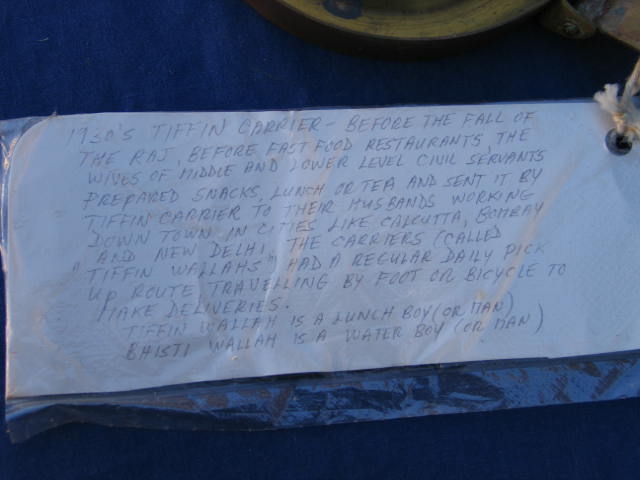 1930'S TIFFIN CARRIER - BEFORE THE FALL OF
THE RAJ, BEFORE FAST FOOD RESTAURANTS, THE
WIVES OF MIDDLE AND LOWER LEVEL CIVIL SERVANTS
PREPARED SNACKS, LUNCH OR TEA AND SENT IT BY
TIFFIN CARRIER TO THEIR HUSBANDS WORKING
DOWN TOWN IN CITIES LIKE CALCUTTA, BOMBAY
AND NEW DELHI. THE CARRIERS (CALLED
"TIFFIN WALLAHS" HAD A REGULAR DAILY PICK
UP ROUTE, TRAVELLING BY FOOT OR BICYCLE TO
MAKE DELIVERIES.
TIFFIN WALLAH IS A LUNCH BOY (OR MAN)
BHISTI WALLAH IS A WATER BOY (OR MAN)